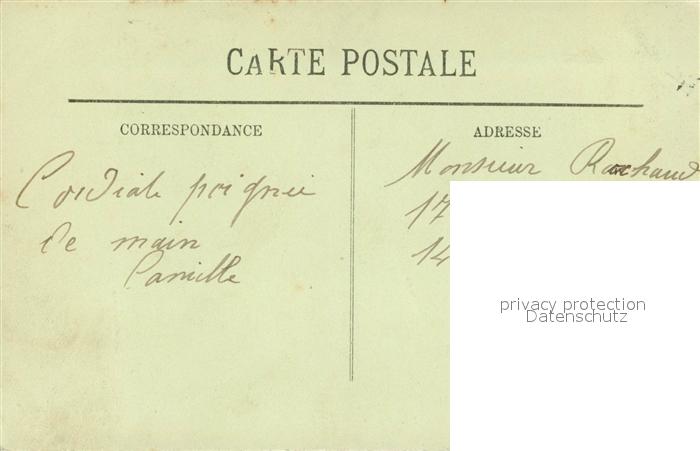 CARTE POSTALE
CORRESPONDANCE
Cordiale poignée
de main
Camille
ADRESSE
Monsieur
17
14
privacy protection
Datenschutz